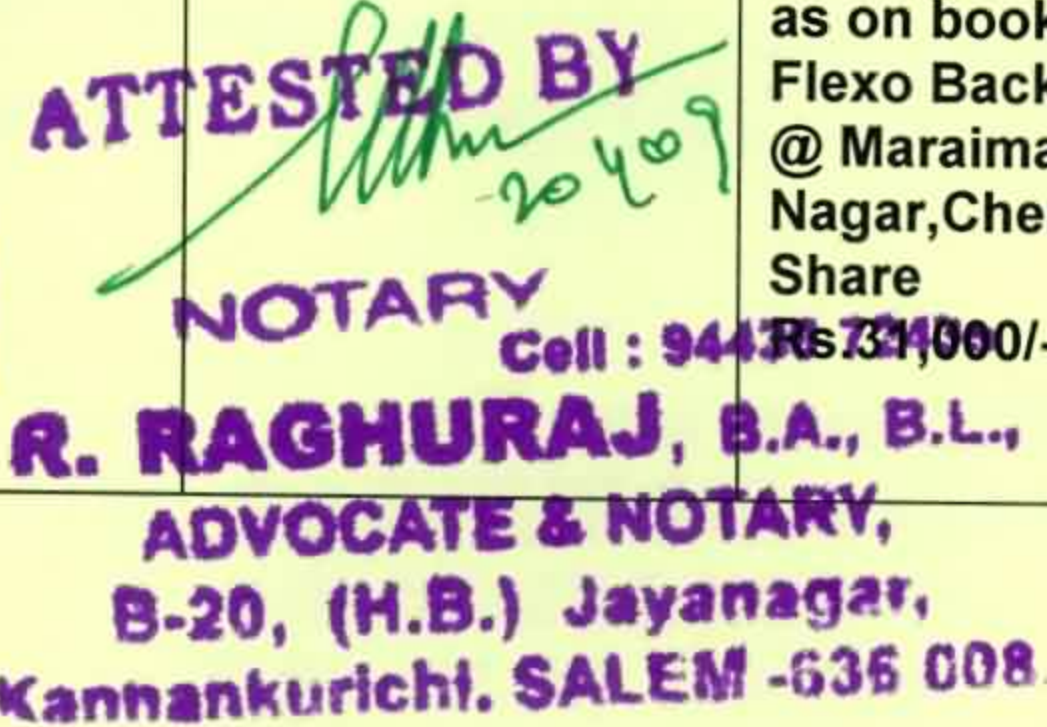 ATTESTED BY
20 4 09
NOTARY
Cell : 944
R. RAGHURAJ, B.A., B.L.,
ADVOCATE & NOTARY,
B-20, (H.B.) Jayanagar,
Kannankurichi. SALEM -636 008.
as on book
Flexo Back
@ Maraima
Nagar,Che
Share
Rs.31,000/-